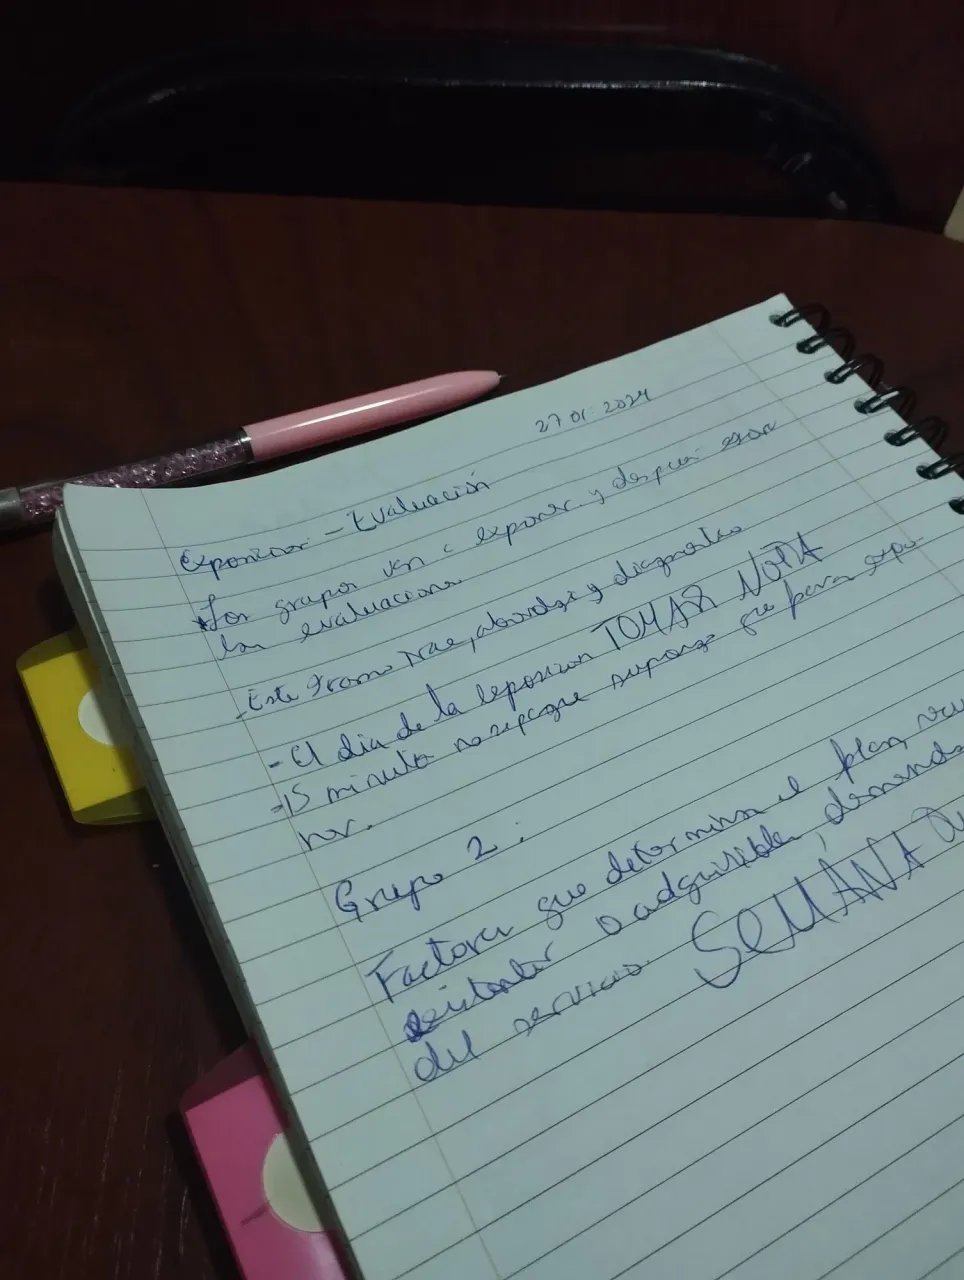 27 01 2024
Exposicion - Evaluación
*Los grupos van a exponer y despues
las evaluaciones
- Este tramo trae, abordaje y diagnostico
- El dia de la exposicion TOMAR NOTA
- 15 minutos no se porque supongo que para expo-
ner.
Grupo 2:
Factores que determinan el plan,
existentes o adquiribles, demanda
del servicio. SEMANA